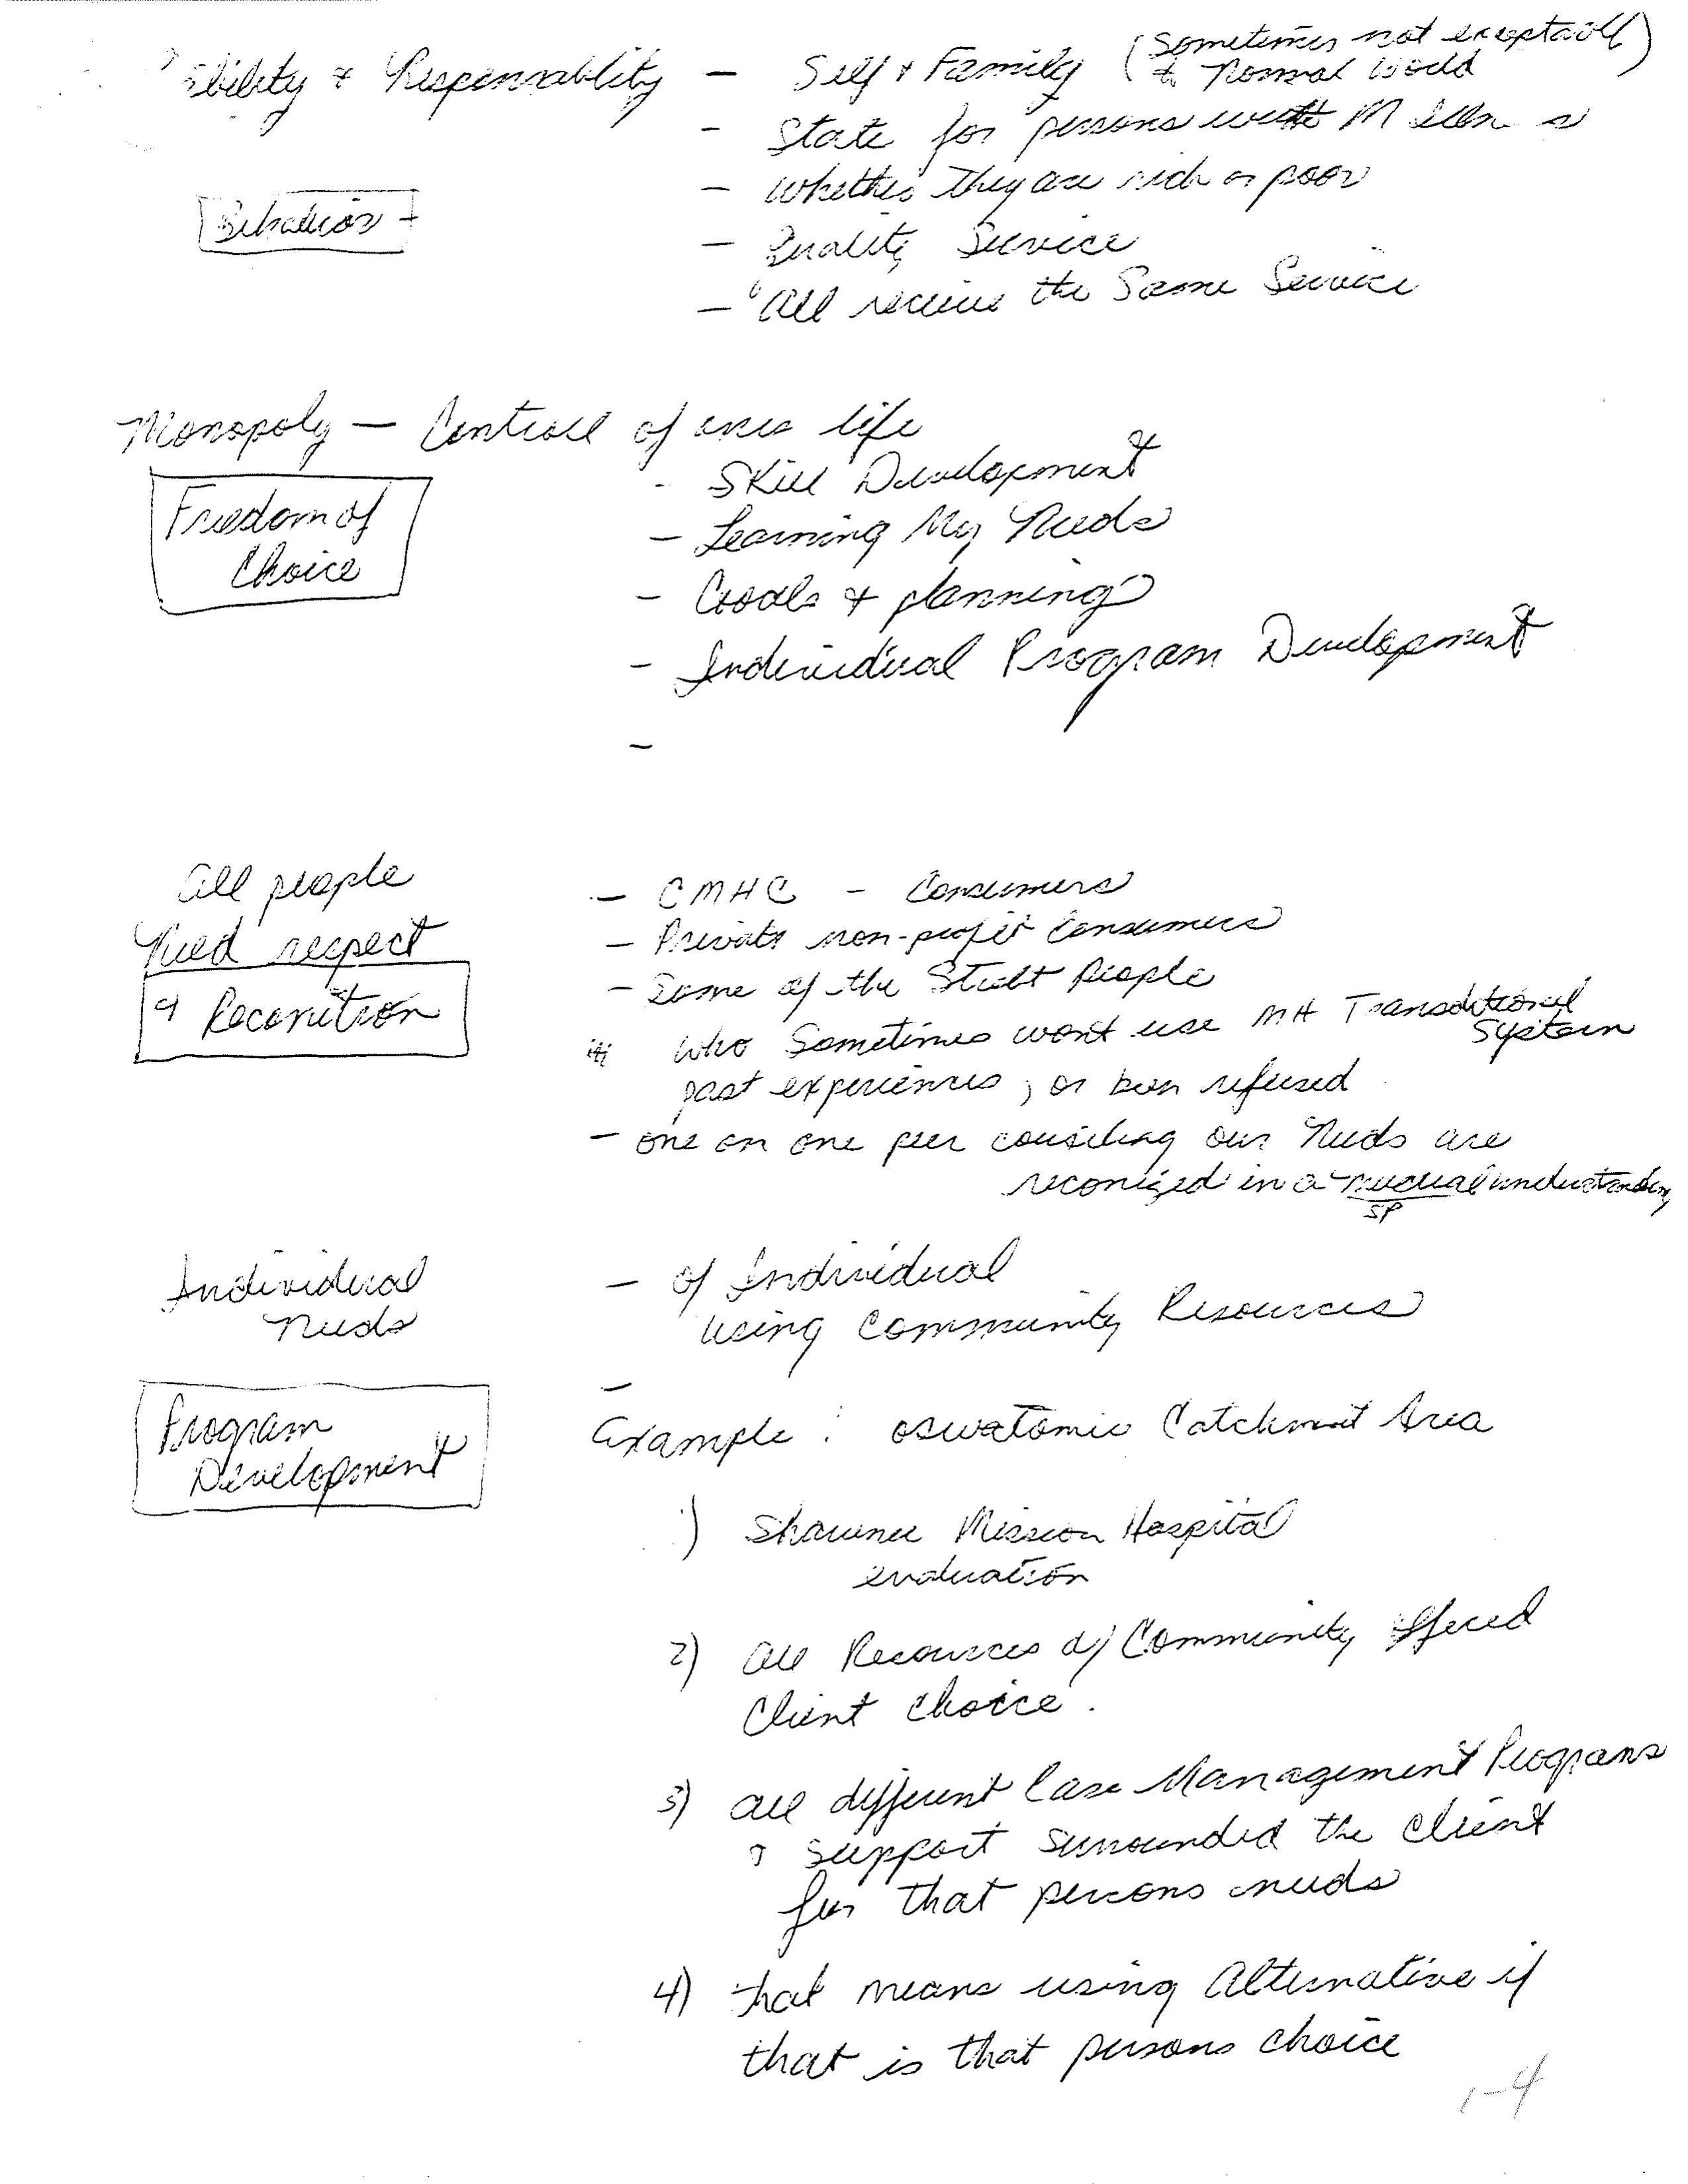 ibility & Responsiblity — Self & Family (Sometimes not exceptable
to normal World)
- State for persons with M
- Whether they are rich or poor
Behavior - Quality Service
- All receive the Same Service
Monopoly — Controll of ones life
- Skill Development
Freedom of - Learning My Needs
Choice - Goals & planning
- Individual Program Development
-
All people - CMHC - Consumers
Need respect - Private non-profit Consumers
& Reconition - Some of the Street People
who Sometimes wont use MH Transditional
System
past experiences, or been refused
- one on one peer counsiling our Needs are
reconized in a mucual understanding
SP
Individual - of Individual
needs using Community Resources
-
Program Example : Oswatomie Catchment Area
Development
1) Shawnee Mission Hospital
evaluation
2) All Resources of Community offered
Client choice.
3) all different Case Management Programs
& support surrounded the client
for that persons needs
4) that means using Alternative if
that is that persons choice
1-4